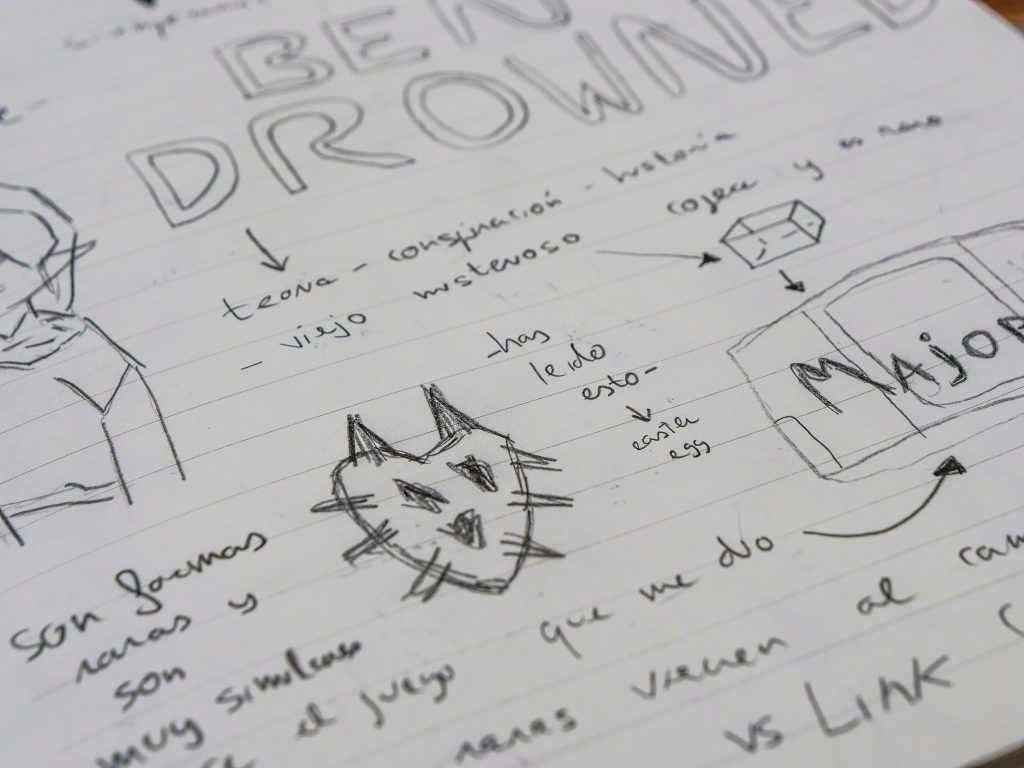 BEN
DROWNED
teoria - conspiración - historia
- viejo misterioso
cojera y es raro
-has
leido
esto-
easter
egg
MAJOR
son formas
raras y
son
muy similares
el juego que me dio
raras vienen al
vs LINK